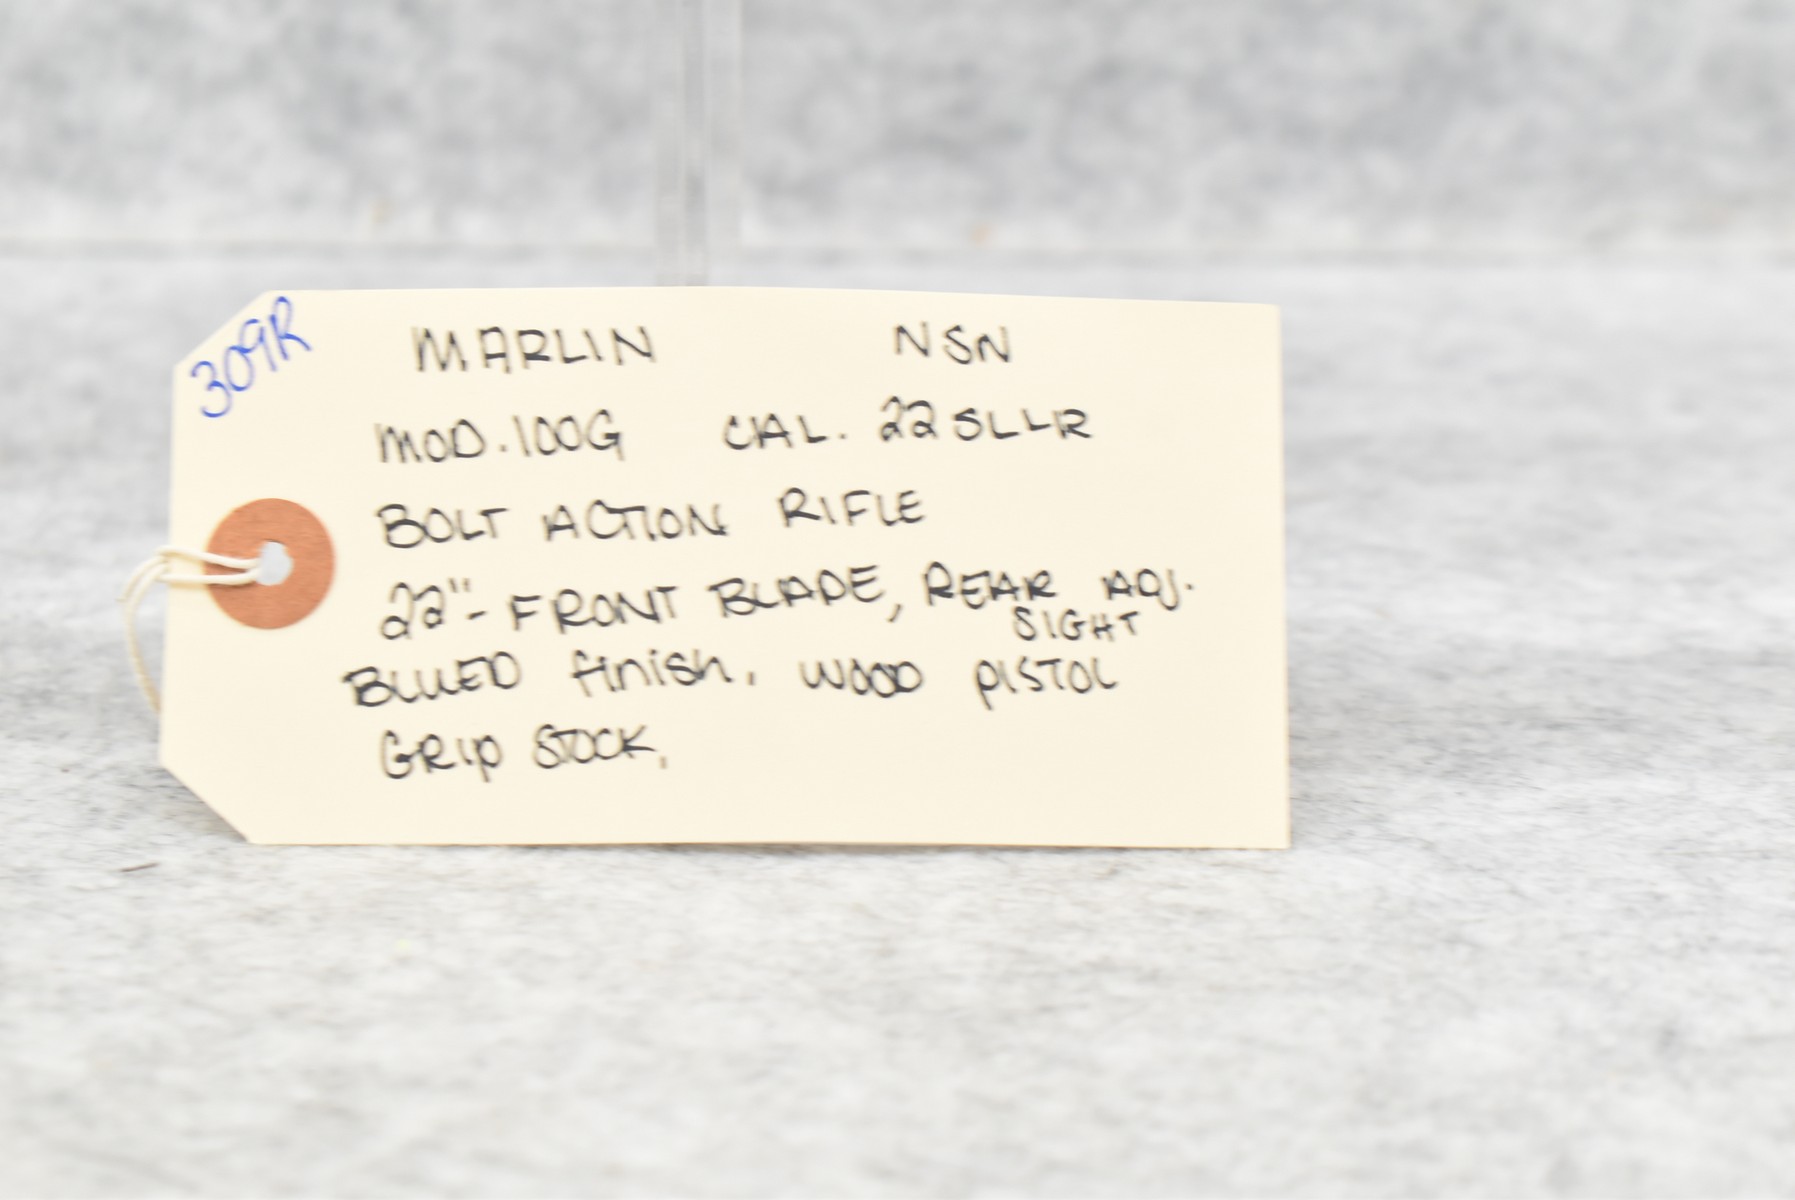 309R
MARLIN NSN
MOD. 100G CAL. 22 SLLR
BOLT ACTION RIFLE
22"- FRONT BLADE, REAR ADJ.
SIGHT
BLUED finish, WOOD PISTOL
GRIP STOCK,